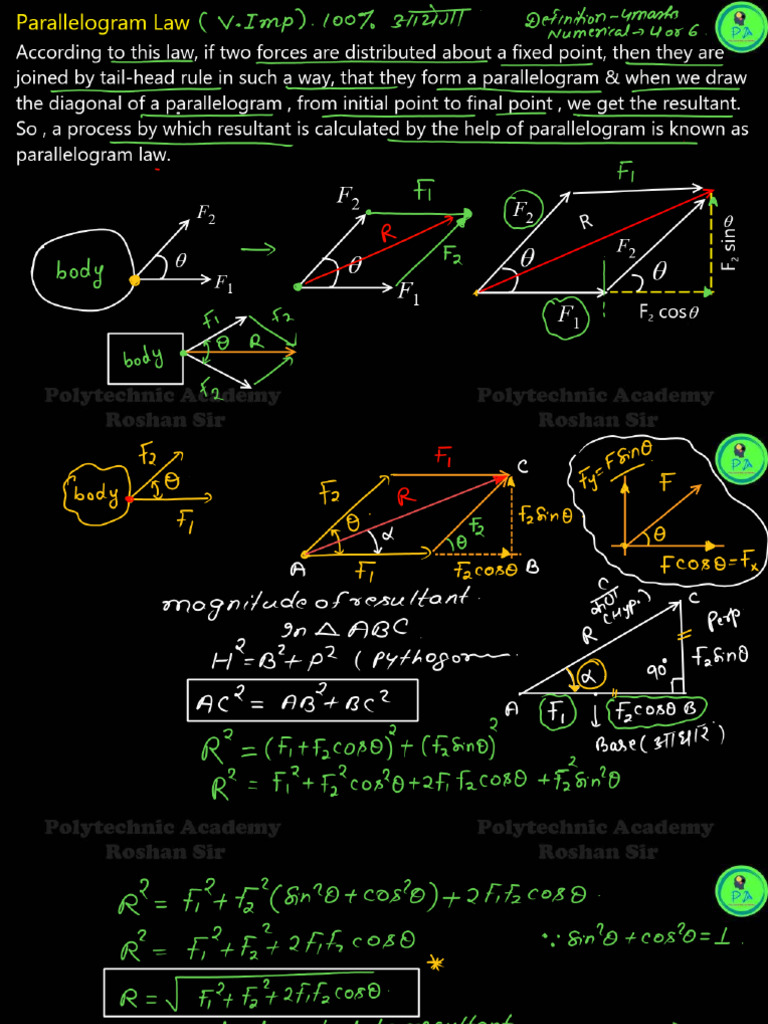 Parallelogram Law ( V.Imp). 100% आयेगा
Definition → 4 marks
Numerical → 4 or 6.
According to this law, if two forces are distributed about a fixed point, then they are
joined by tail-head rule in such a way, that they form a parallelogram & when we draw
the diagonal of a parallelogram , from initial point to final point , we get the resultant.
So , a process by which resultant is calculated by the help of parallelogram is known as
parallelogram law.
body F₂ θ F₁
F₂ F₁ R θ F₂ F₁
F₂ F₁ R θ F₂ θ F₁ F₂ cosθ F₂ sinθ
body F₁ F₂ θ R F₂
Polytechnic Academy
Roshan Sir
Polytechnic Academy
Roshan Sir
PA
body F₂ θ F₁
F₁ C F₂ R θ α F₂ θ F₂sinθ
A F₁ F₂cosθ B
Fy=Fsinθ F θ
Fcosθ=Fx
magnitude of resultant.
In △ ABC
H²=B²+P² (
AC² = AB²+BC²
कर्ण
(Hyp.) C
R Perp
F₂sinθ
90° α
A F₁ F₂cosθ B
Base (आधार)
R²=(F₁+F₂cosθ)²+(F₂sinθ)²
R² = F₁²+F₂²cos²θ+2F₁F₂cosθ +F₂²sin²θ
Polytechnic Academy
Roshan Sir
Polytechnic Academy
Roshan Sir
PA
R²= F₁²+F₂²(sin²θ+cos²θ)+2F₁F₂cosθ.
R²= F₁²+F₂²+2F₁F₂cosθ
∵ sin²θ+cos²θ=1.
R=√F₁²+F₂²+2F₁F₂cosθ.
PA